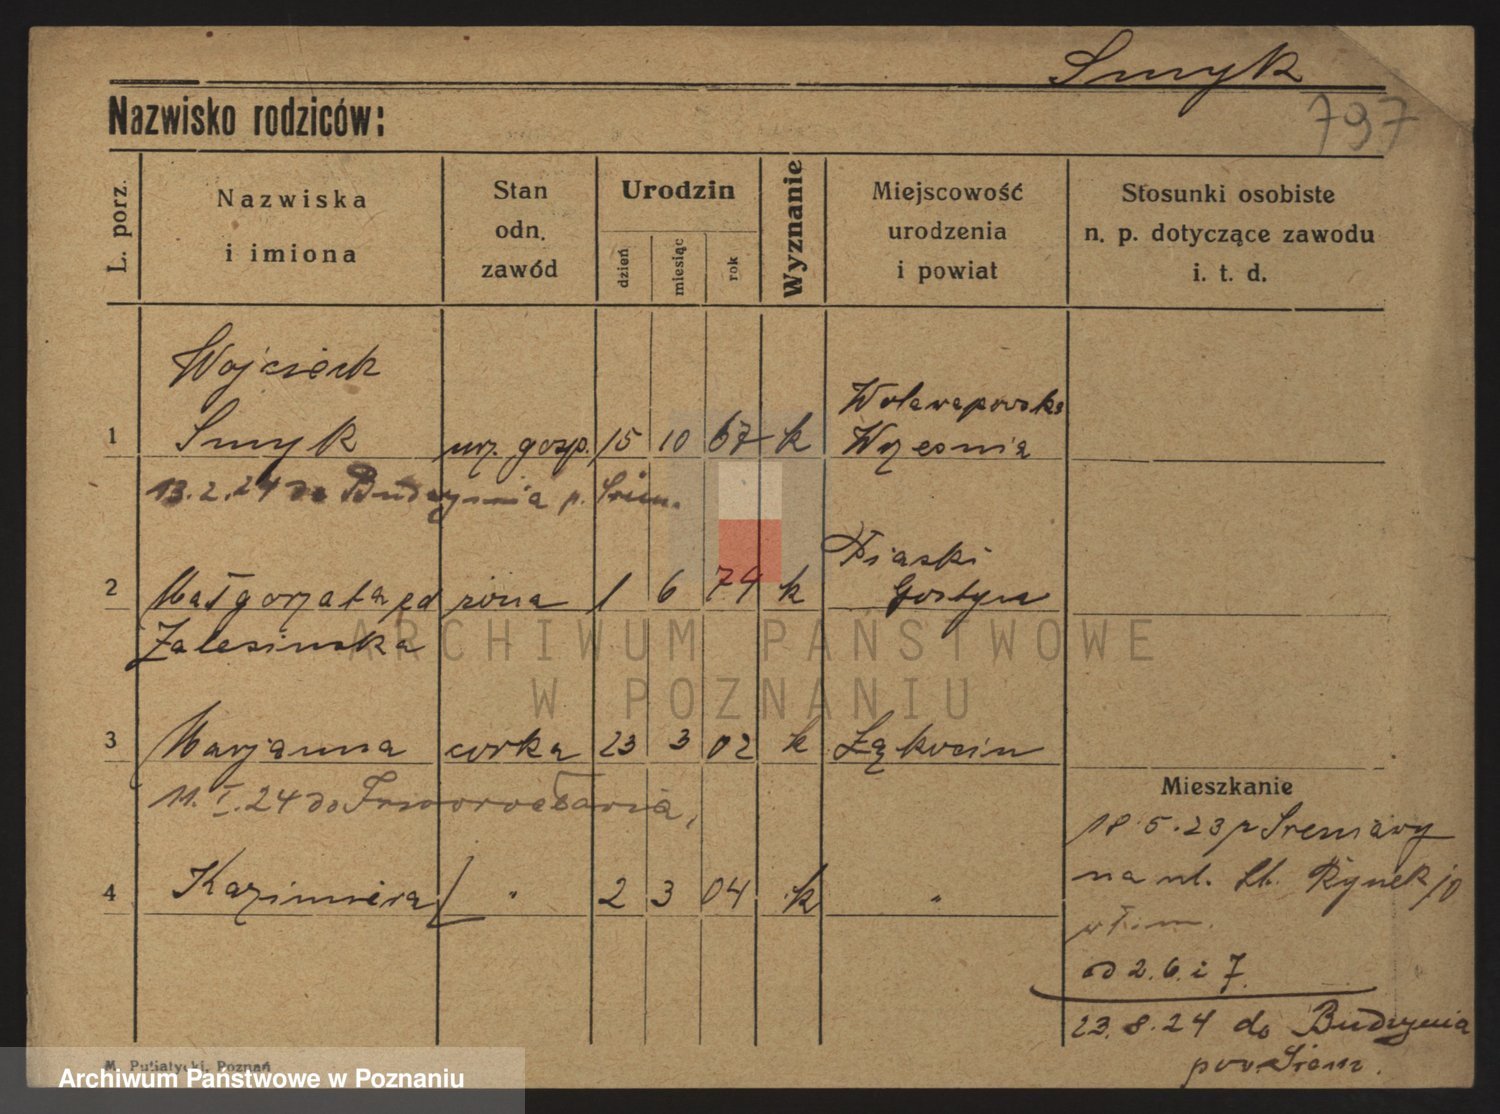 Smyk
Nazwisko rodziców:
797
L. porz.
Nazwiska
i imiona
Stan
odn.
zawód
Urodzin
dzień
miesiąc
rok
Wyznanie
Miejscowość
urodzenia
i powiat
Stosunki osobiste
n. p. dotyczące zawodu
i. t. d.
Wojciech
1 Smyk urz. gosp. 15 10 67 k
Września
13.2.24 do Budzynia p. Śrem.
Piaski
2 Małgorzata żona 1 6 74 k Gostyń
Zalesinska
3 Marjanna corka 23 3 02 k Łąkocin
11. I. 24 do
4 Kazimiera " 2 3 04 k "
Mieszkanie
18.5.23
na ul. Rynek 10
od 2.6. i 7.
23.8.24 do Budzynia
pow. Śrem.
M. Putiatycki, Poznań
ARCHIWUM PAŃSTWOWE
W POZNANIU
Archiwum Państwowe w Poznaniu